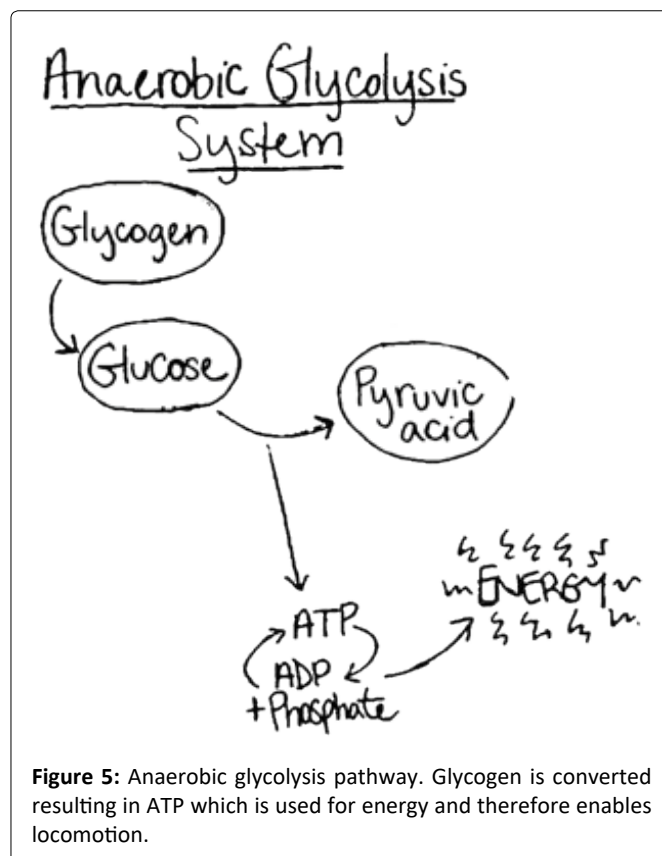 Anaerobic Glycolysis
System
Glycogen
Glucose
Pyruvic
acid
ENERGY
ATP
ADP
+Phosphate
Figure 5: Anaerobic glycolysis pathway. Glycogen is converted
resulting in ATP which is used for energy and therefore enables
locomotion.